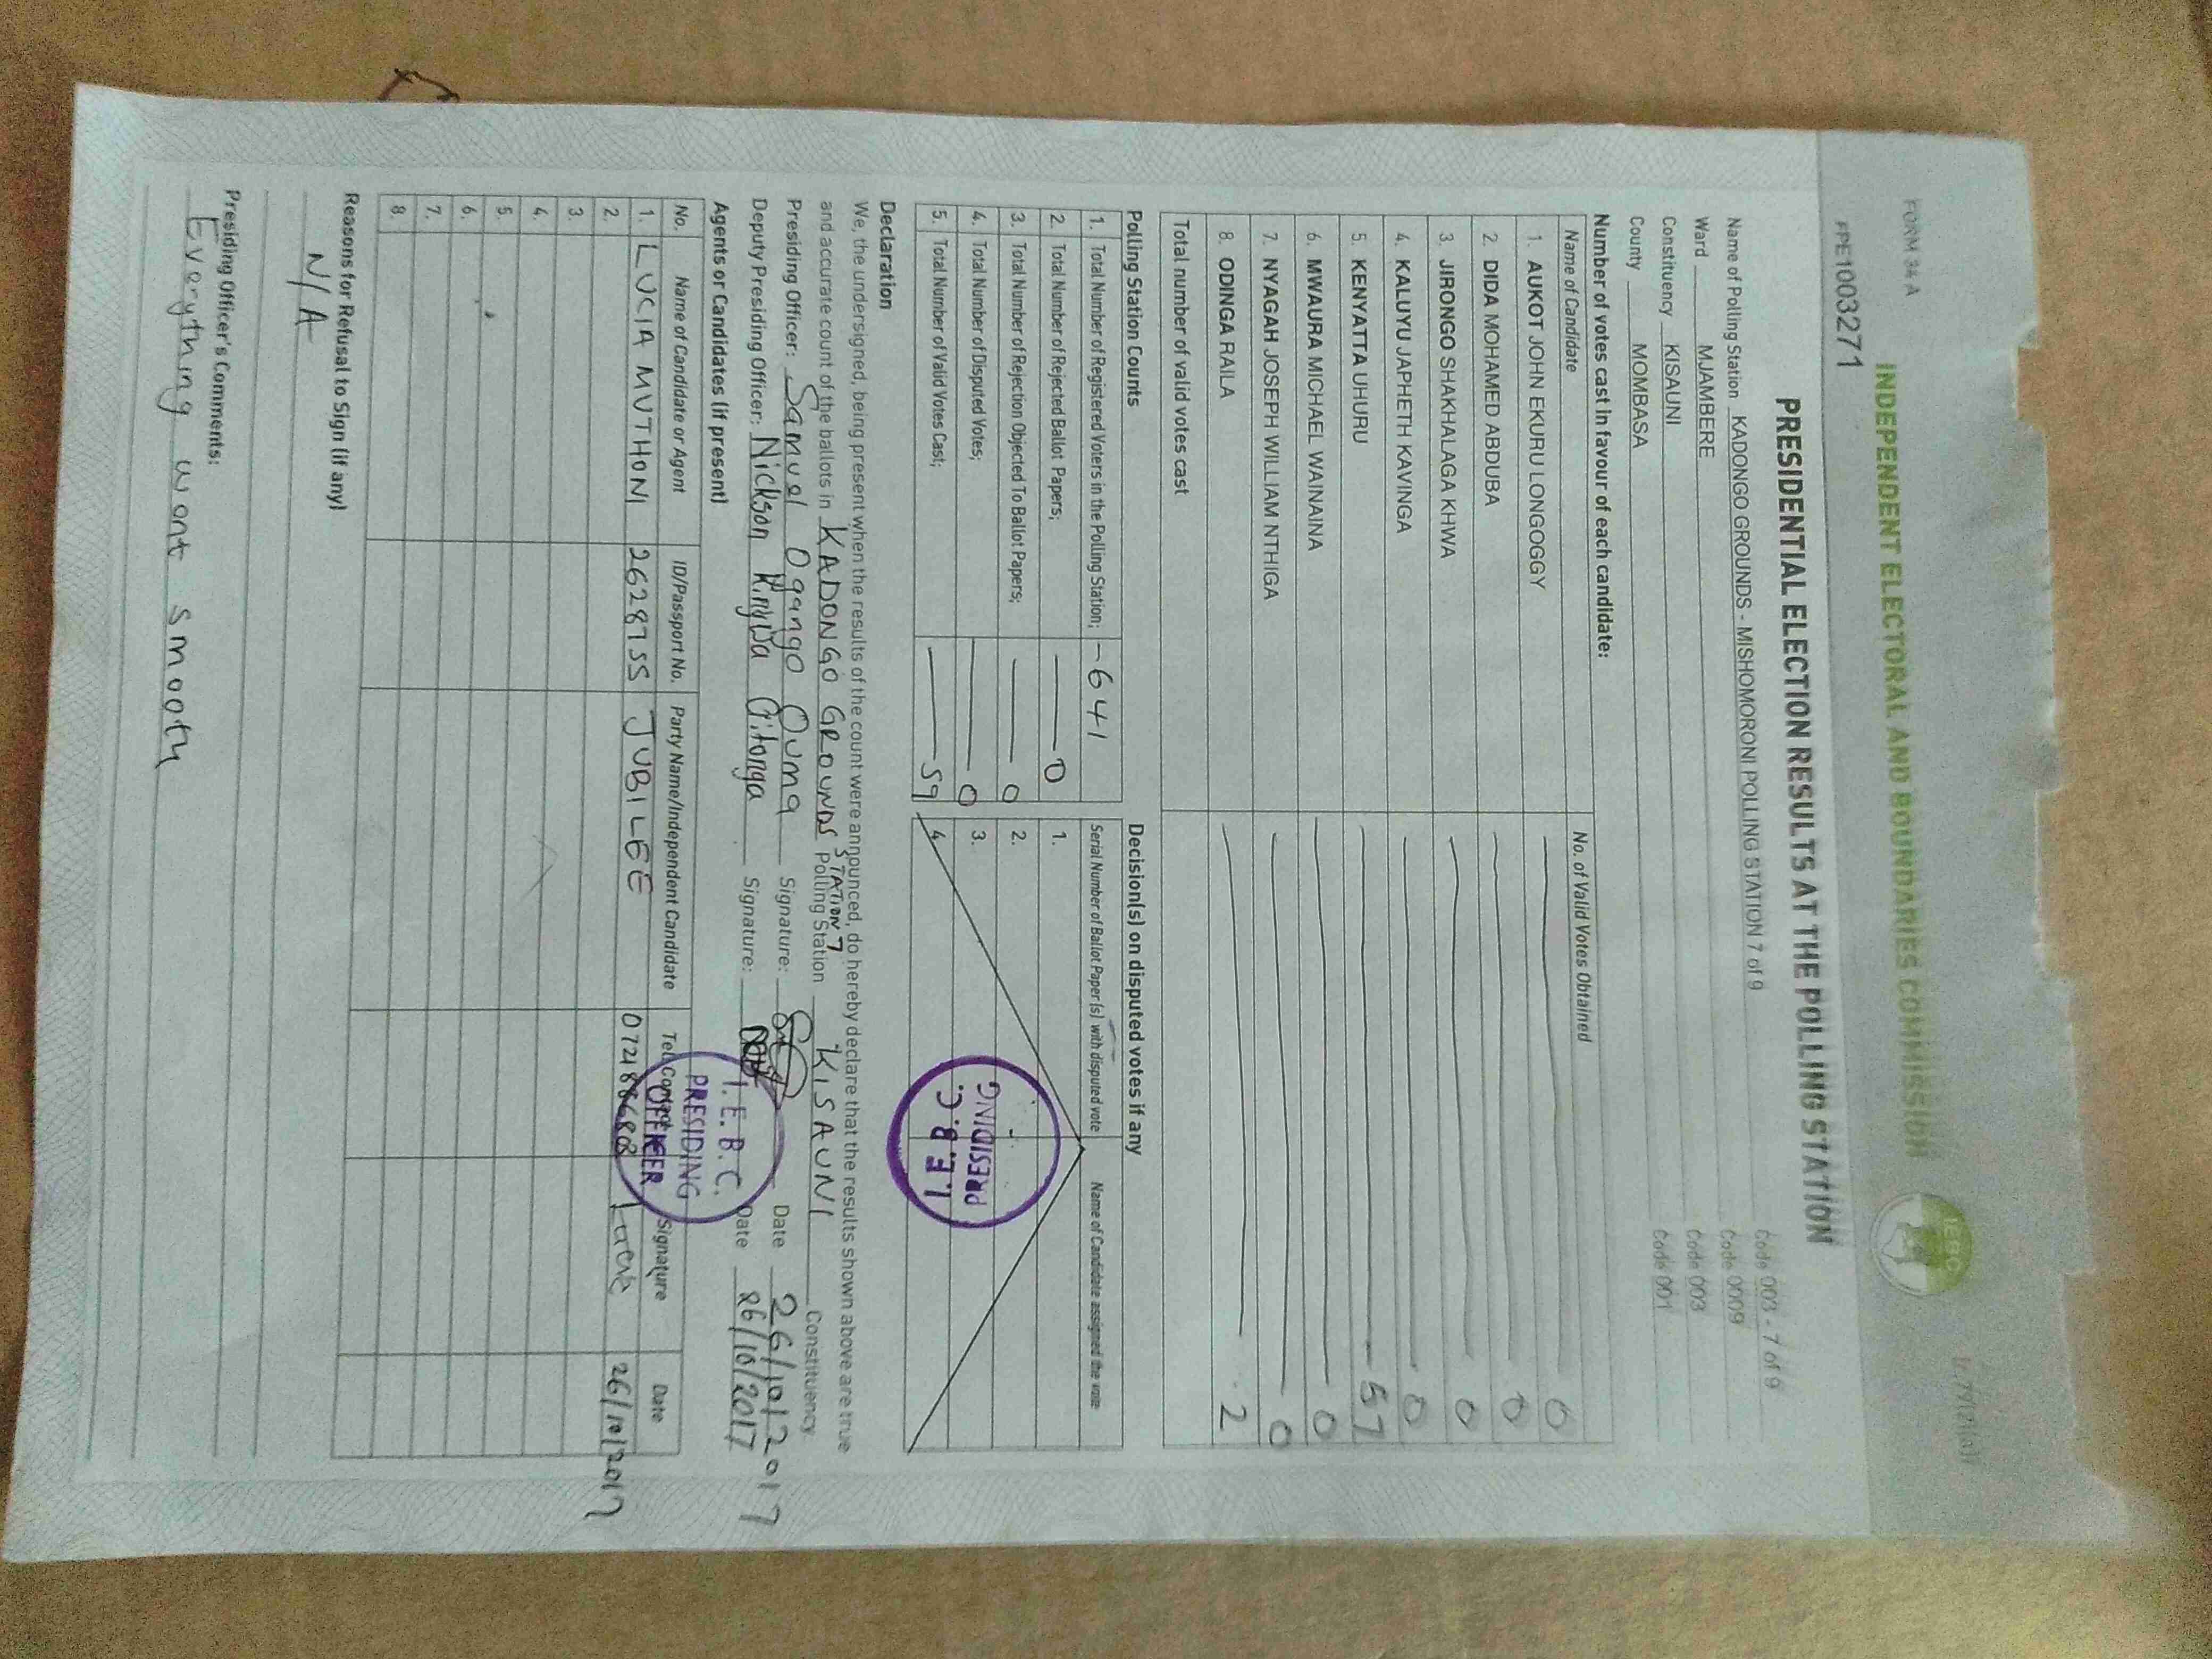 FORM 34 A
INDEPENDENT ELECTORAL AND BOUNDARIES COMMISSION
IEBC
PPE1003271
PRESIDENTIAL ELECTION RESULTS AT THE POLLING STATION
Name of Polling Station KADONGO GROUNDS - MISHOMORONI POLLING STATION 7 of 9 Code 003 - 7 of 9
Ward MJAMBERE Code 0009
Constituency KISAUNI Code 003
County MOMBASA Code 001
Number of votes cast in favour of each candidate:
Name of Candidate No. of Valid Votes Obtained
1. AUKOT JOHN EKURU LONGOGGY 0
2. DIDA MOHAMED ABDUBA 0
3. JIRONGO SHAKHALAGA KHWA 0
4. KALUYU JAPHETH KAVINGA 0
5. KENYATTA UHURU 57
6. MWAURA MICHAEL WAINAINA 0
7. NYAGAH JOSEPH WILLIAM NTHIGA 0
8. ODINGA RAILA 2
Total number of valid votes cast
Polling Station Counts
1. Total Number of Registered Voters in the Polling Station; - 641
2. Total Number of Rejected Ballot Papers; 0
3. Total Number of Rejection Objected To Ballot Papers; 0
4. Total Number of Disputed Votes; 0
5. Total Number of Valid Votes Cast; 59
Decision(s) on disputed votes if any
Serial Number of Ballot Paper (s) with disputed vote Name of Candidate assigned the vote
1.
2.
3.
4.
I.E.B.C.
PRESIDING
Declaration
We, the undersigned, being present when the results of the count were announced, do hereby declare that the results shown above are true
and accurate count of the ballots in KADONGO GROUNDS STATION 7 Polling Station KISAUNI Constituency
Presiding Officer: Samuel Ogango Ouma Signature: Date 26/10/2017
Deputy Presiding Officer: Nickson Gitonga Signature: Date 26/10/2017
I.E.B.C.
PRESIDING
OFFICER
Agents or Candidates (if present)
No. Name of Candidate or Agent ID/Passport No. Party Name/Independent Candidate Tel Contact Signature Date
1. LUCIA MUTHONI 26287355 JUBILEE 26/10/2017
2.
3.
4.
5.
6.
7.
8.
Reasons for Refusal to Sign (if any)
N/A
Presiding Officer's Comments:
Everything went smooth